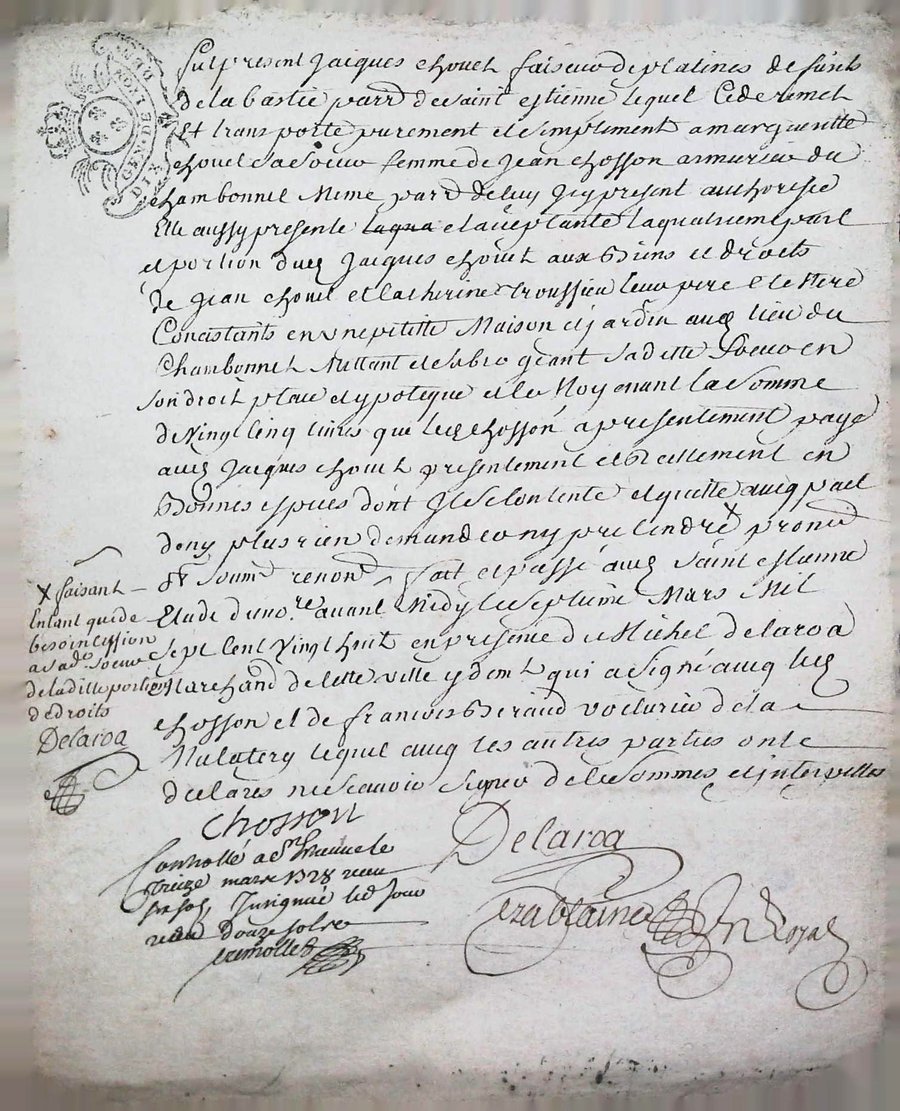 GEN. DE LION
DIX DEN
fut present Jacques chouel faiseur de platines de fusils
de la bastie parr. de saint estienne lequel cede remet
Et transporte purement et simplement a margueritte
chouel sa soeur femme de Jean chosson armurier du
chambonnet Meme parr. de luy Icy present authorisée
Elle aussy presente et acceptante la quatrieme part
et portion dud. Jacques chouel aux Biens et droits
de Jean chouel et Catherine troussieu leur pere et Mere
Concistants en une petitte Maison et jardin aud. lieu du
Chambonnet Mettant et subrogeant sad. ditte Soeur en
son droit place et ypoteque et le Moyenant la somme
de Vingt Cinq livres que led. chosson a presentement payé
aud. Jacques chouel presentement et Reellement en
Bonnes espeices dont Il se Contente et quitte avec pact
de ny plus rien demander ny pretendre x promd
soum. renond. fait et passé aud. Saint estienne
Etude du no.re avant Midy le septieme Mars Mil
sept Cent Vingt huit en presence de Michel delaroa
Marchand de cette ville y dem.t qui a signé avec led.
chosson et de françois Beraud voiturier de la
Mulatery lequel avec les autres parties ont
declarés ne scavoir signer de ce sommés et interpellés
x faisant
Entant que de
besoin cession
a sad. soeur
de laditte portion
de droits
Delaroa
chosson
Delaroa
Controllé a St Etienne le
treize mars 1728 receu
six sols Insignué led. jour
receu douze sols